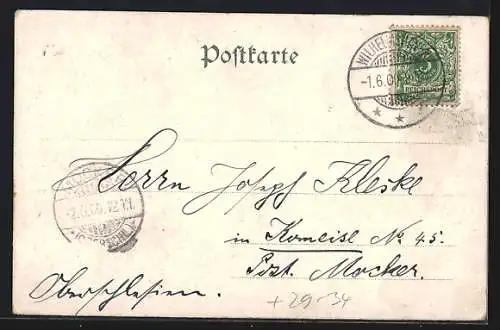 Postkarte
WILHELM
-1.6.00.
Herrn Joseph Kleske
-2.6.00.12
in Komeise No 45.
Post. Mocker.
Oberschlesien.
+29-34